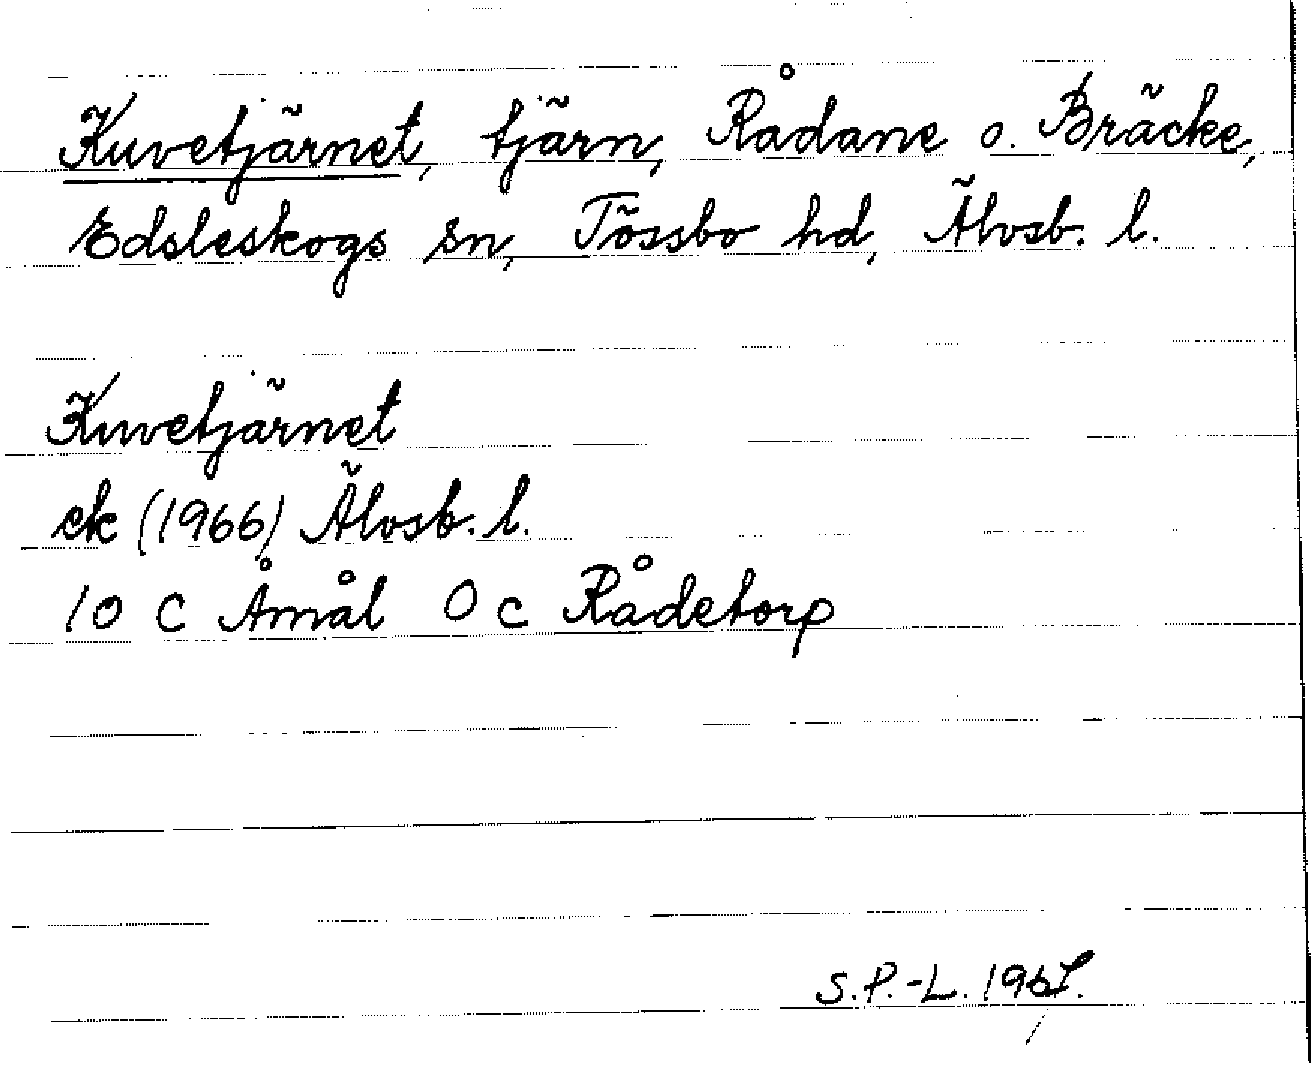 Kuvetjärnet, tjärn, Rådane o. Bräcke,
Edsleskogs sn, Tössbo hd, Älvsb. l.
Kuvetjärnet
ek (1966) Älvsb. l.
10 C Åmål 0 c Rådetorp
S.P.-L. 1967.